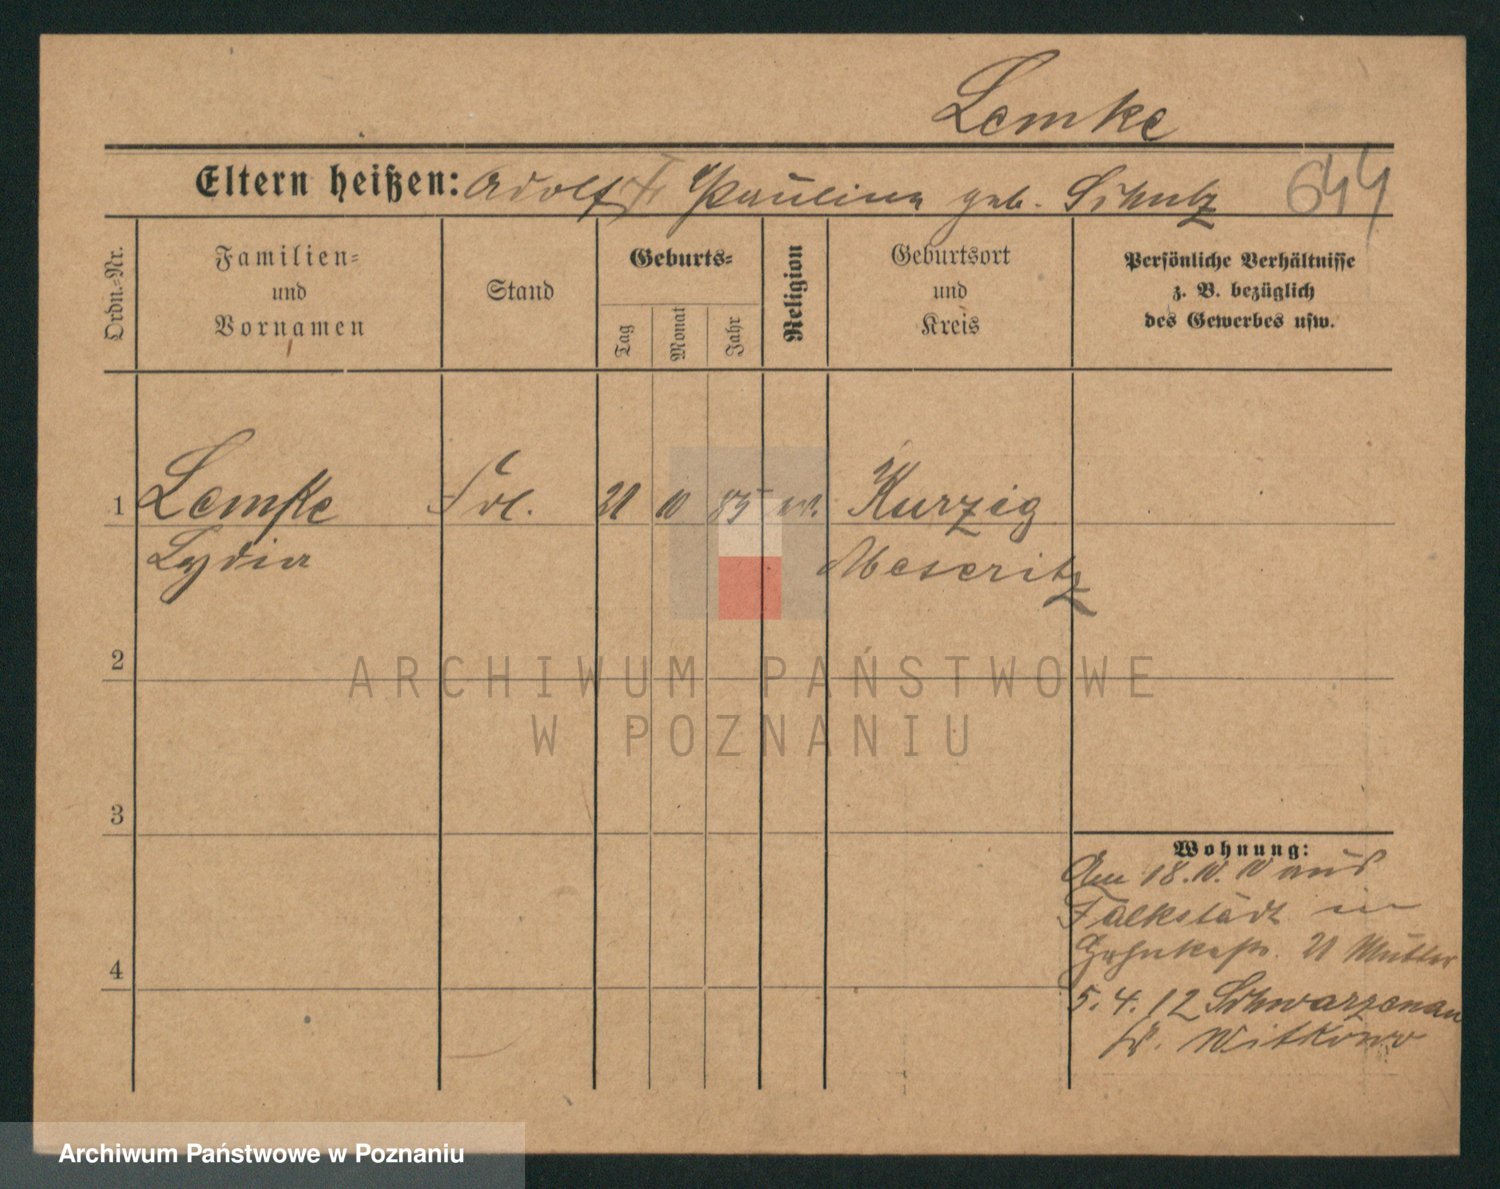 Lemke
Eltern heißen: Adolf † Pauline geb. Schulz
644
Ordn.=Nr.
Familien=
und
Vornamen
Stand
Geburts=
Tag
Monat
Jahr
Religion
Geburtsort
und
Kreis
Persönliche Verhältnisse
z. B. bezüglich
des Gewerbes usw.
1 Lemke Frl. 21 10 85 ev. Kurzig
Lydia Meseritz
2
ARCHIWUM PAŃSTWOWE
W POZNANIU
3
Wohnung:
Am 18. 10. 10 aus
Falkstädt in
21 Mutter
4
5. 4. 12 Schwarzenau
Witkowo
Archiwum Państwowe w Poznaniu